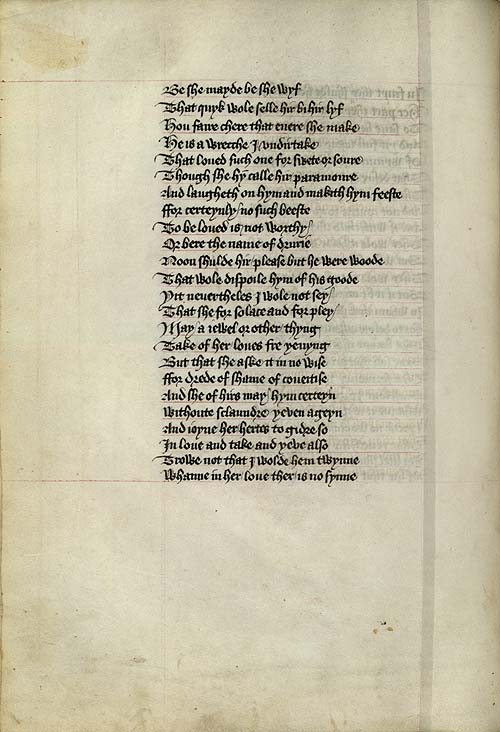 Be she mayde be she wyf
That quyk wole selle hir bi hir lyf
Hou faire chere that euere she make
He is a wrecche I vndirtake
That loued such one for swete or soure
Though she hym calle hir paramoure
And laugheth on hym and makith hym feeste
ffor certeynly / no such beeste
To be loued is not worthy /
Or bere the name of drurie
Noon shulde hir please but he were woode
That wole dispoile hym of his goode
Yit neuertheles I wole not sey /
That she for solace and for pley /
May a iewel or other thyng
Take of her loues fre yeuyng
But that she aske it in no wise
ffor drede of shame of coueitise
And she of hirs may / hym certeyn
Withoute sclaundre yeuen ageyn
And ioyne her hertes to gidre so
In loue and take and yeue also
Trowe not that I wolde hem twynne
Whanne in her loue ther is no synne